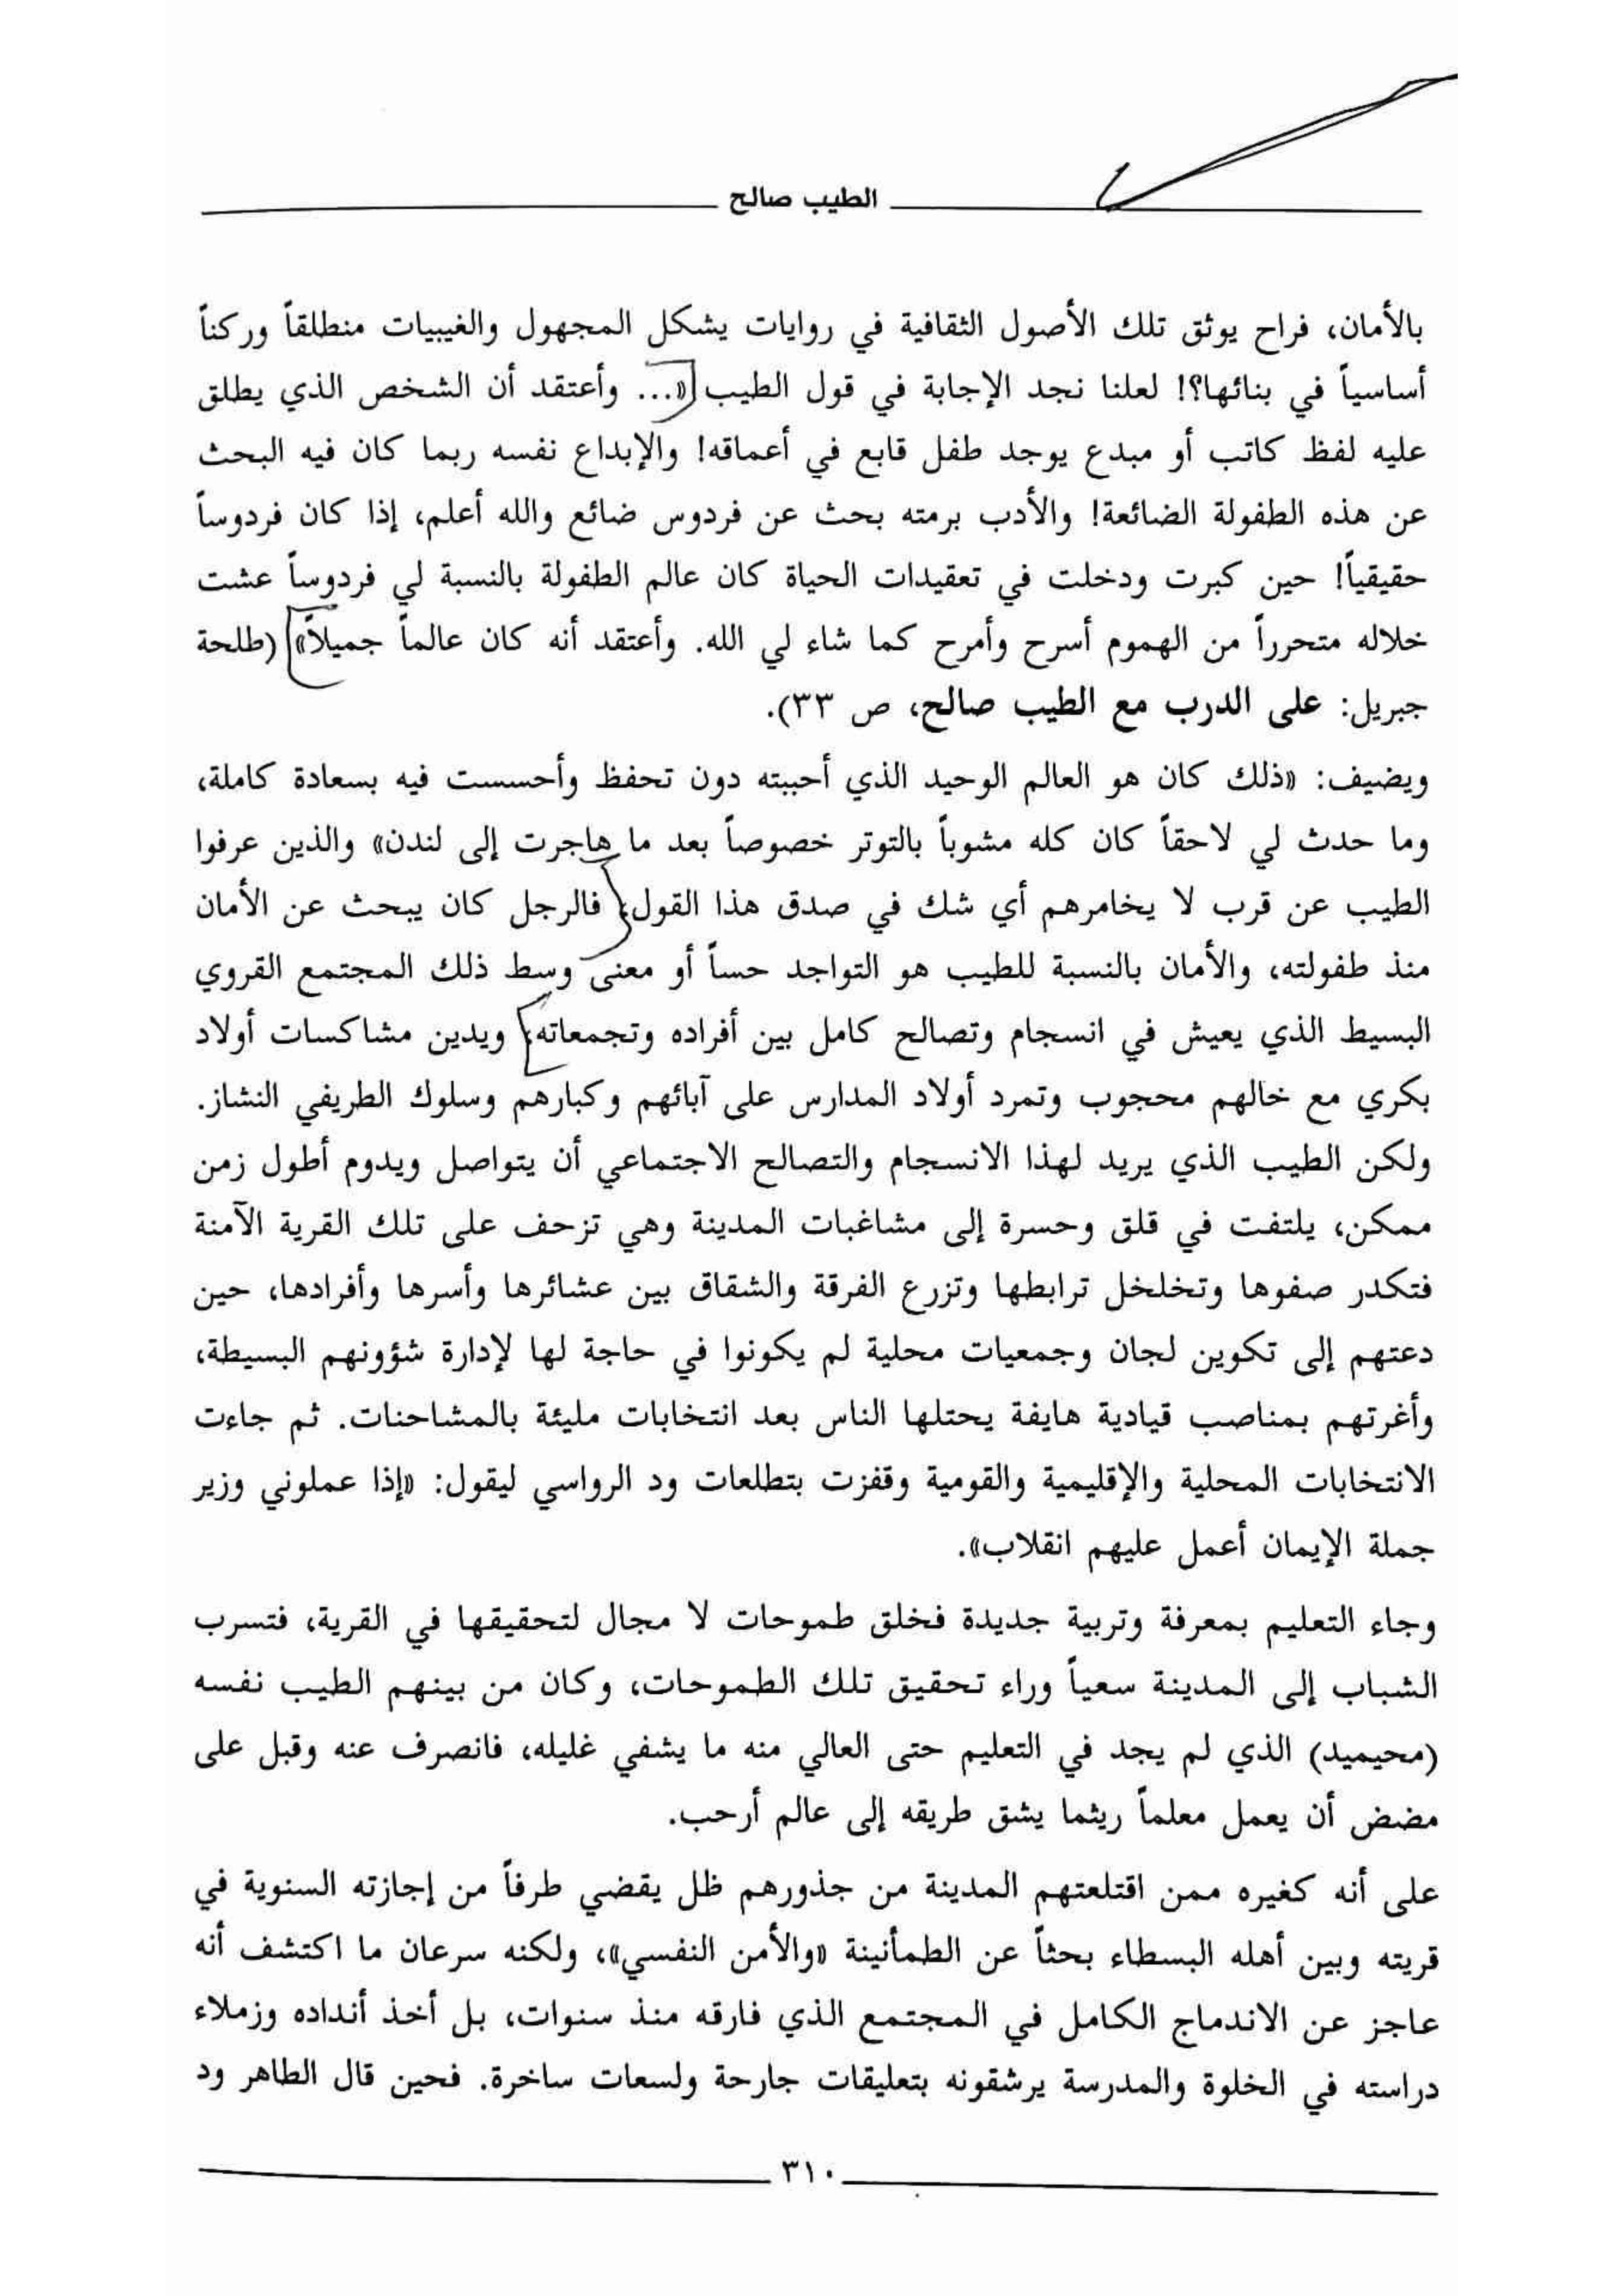 الطيب صالح
بالأمان، فراح يوثق تلك الأصول الثقافية في روايات يشكل المجهول والغيبيات منطلقاً وركناً
أساسياً في بنائها؟! لعلنا نجد الإجابة في قول الطيب «... وأعتقد أن الشخص الذي يطلق
عليه لفظ كاتب أو مبدع يوجد طفل قابع في أعماقه! والإبداع نفسه ربما كان فيه البحث
عن هذه الطفولة الضائعة! والأدب برمته بحث عن فردوس ضائع والله أعلم، إذا كان فردوساً
حقيقياً! حين كبرت ودخلت في تعقيدات الحياة كان عالم الطفولة بالنسبة لي فردوساً عشت
خلاله متحرراً من الهموم أسرح وأمرح كما شاء لي الله. وأعتقد أنه كان عالماً جميلاً» (طلحة
جبريل: على الدرب مع الطيب صالح، ص ٣٣).
ويضيف: «ذلك كان هو العالم الوحيد الذي أحببته دون تحفظ وأحسست فيه بسعادة كاملة،
وما حدث لي لاحقاً كان كله مشوباً بالتوتر خصوصاً بعد ما هاجرت إلى لندن» والذين عرفوا
الطيب عن قرب لا يخامرهم أي شك في صدق هذا القول؛ فالرجل كان يبحث عن الأمان
منذ طفولته، والأمان بالنسبة للطيب هو التواجد حساً أو معنى وسط ذلك المجتمع القروي
البسيط الذي يعيش في انسجام وتصالح كامل بين أفراده وتجمعاته؛ ويدين مشاكسات أولاد
بكري مع خالهم محجوب وتمرد أولاد المدارس على آبائهم وكبارهم وسلوك الطريفي النشاز.
ولكن الطيب الذي يريد لهذا الانسجام والتصالح الاجتماعي أن يتواصل ويدوم أطول زمن
ممكن، يلتفت في قلق وحسرة إلى مشاغبات المدينة وهي تزحف على تلك القرية الآمنة
فتكدر صفوها وتخلخل ترابطها وتزرع الفرقة والشقاق بين عشائرها وأسرها وأفرادها، حين
دعتهم إلى تكوين لجان وجمعيات محلية لم يكونوا في حاجة لها لإدارة شؤونهم البسيطة،
وأغرتهم بمناصب قيادية هايفة يحتلها الناس بعد انتخابات مليئة بالمشاحنات. ثم جاءت
الانتخابات المحلية والإقليمية والقومية وقفزت بتطلعات ود الرواسي ليقول: «إذا عملوني وزير
جملة الإيمان أعمل عليهم انقلاب».
وجاء التعليم بمعرفة وتربية جديدة فخلق طموحات لا مجال لتحقيقها في القرية، فتسرب
الشباب إلى المدينة سعياً وراء تحقيق تلك الطموحات، وكان من بينهم الطيب نفسه
(محيميد) الذي لم يجد في التعليم حتى العالي منه ما يشفي غليله، فانصرف عنه وقبل على
مضض أن يعمل معلماً ريثما يشق طريقه إلى عالم أرحب.
على أنه كغيره ممن اقتلعتهم المدينة من جذورهم ظل يقضي طرفاً من إجازته السنوية في
قريته وبين أهله البسطاء بحثاً عن الطمأنينة «والأمن النفسي»، ولكنه سرعان ما اكتشف أنه
عاجز عن الاندماج الكامل في المجتمع الذي فارقه منذ سنوات، بل أخذ أنداده وزملاء
دراسته في الخلوة والمدرسة يرشقونه بتعليقات جارحة ولسعات ساخرة. فحين قال الطاهر ود
٣١٠